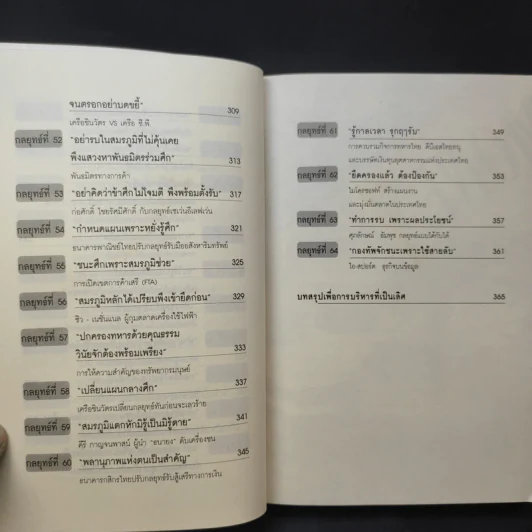 จนตรอกอย่าบดขยี้" 309
เครือชินวัตร VS เครือ ซี.พี.
กลยุทธ์ที่ 52 "อย่ารบในสมรภูมิที่ไม่คุ้นเคย
พึงแสวงหาพันธมิตรร่วมศึก" 313
พันธมิตรทางการค้า
กลยุทธ์ที่ 53 "อย่าคิดว่าข้าศึกไม่โจมตี พึงพร้อมตั้งรับ" 317
ก่อศักดิ์ ไชยรัศมีศักดิ์ กับกลยุทธ์เซเว่นอีเลฟเว่น
กลยุทธ์ที่ 54 "กำหนดแผนเพราะหยั่งรู้ศึก" 321
ธนาคารพาณิชย์ไทยปรับกลยุทธ์รับมืออสังหาริมทรัพย์
กลยุทธ์ที่ 55 "ชนะศึกเพราะสมรภูมิช่วย" 325
การเปิดเขตการค้าเสรี (FTA)
กลยุทธ์ที่ 56 "สมรภูมิหลักได้เปรียบพึงเข้ายึดก่อน" 329
ซิว - เนชั่นแนล ผู้กุมตลาดเครื่องใช้ไฟฟ้า
กลยุทธ์ที่ 57 "ปกครองทหารด้วยคุณธรรม
วินัยจักต้องพร้อมเพรียง" 333
การให้ความสำคัญของทรัพยากรมนุษย์
กลยุทธ์ที่ 58 "เปลี่ยนแผนกลางศึก" 337
เครือชินวัตรเปลี่ยนกลยุทธ์ทันก่อนจะเลวร้าย
กลยุทธ์ที่ 59 "สมรภูมิแตกหักมิรู้เป็นมิรู้ตาย" 341
คีรี กาญจนพาสน์ ผู้นำ "ธนายง" ดับเครื่องชน
กลยุทธ์ที่ 60 "พลานุภาพแห่งตนเป็นสำคัญ" 345
ธนาคารกสิกรไทยปรับกลยุทธ์รับสู้เสรีทางการเงิน
กลยุทธ์ที่ 61 "รู้กาลเวลา รุกฤๅรับ" 349
การควบรวมกิจการทหารไทย ดีบีเอสไทยทนุ
และบรรษัทเงินทุนอุตสาหกรรมแห่งประเทศไทย
กลยุทธ์ที่ 62 "ยึดครองแล้ว ต้องป้องกัน" 353
ไมโครซอฟท์ สร้างแผนงาน
และมุ่งมั่นตลาดในประเทศไทย
กลยุทธ์ที่ 63 "ทำการรบ เพราะผลประโยชน์" 357
ศุภลักษณ์ อัมพุช กลยุทธ์แบบได้กับได้
กลยุทธ์ที่ 64 "กองทัพจักชนะเพราะใช้สายลับ" 361
ไอ-สปอร์ต ธุรกิจบนข้อมูล
บทสรุปเพื่อการบริหารที่เป็นเลิศ 365